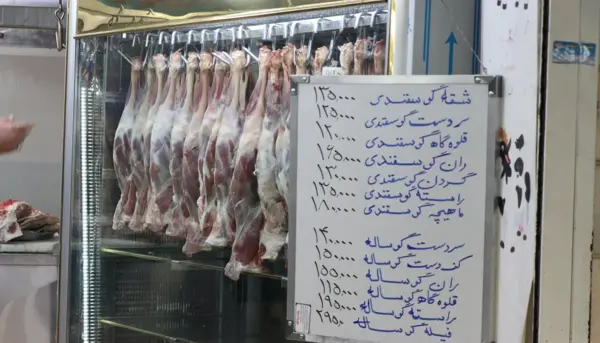 شقه گوسفندی ۱۳۵,۰۰۰
سردست گوسفندی ۱۲۵,۰۰۰
قلوه گاه گوسفندی ۱۲۰,۰۰۰
ران گوسفندی ۱۶۵,۰۰۰
گردن گوسفندی ۱۳۰,۰۰۰
راسته گوسفندی ۱۳۵,۰۰۰
ماهیچه گوسفندی ۱۸۰,۰۰۰
سردست گوساله ۱۴۰,۰۰۰
کف دست گوساله ۱۵۰,۰۰۰
ران گوساله ۱۵۵,۰۰۰
قلوه گاه گوساله ۱۱۵,۰۰۰
راسته گوساله ۱۹۵,۰۰۰
فیله گوساله ۲۹۵,۰